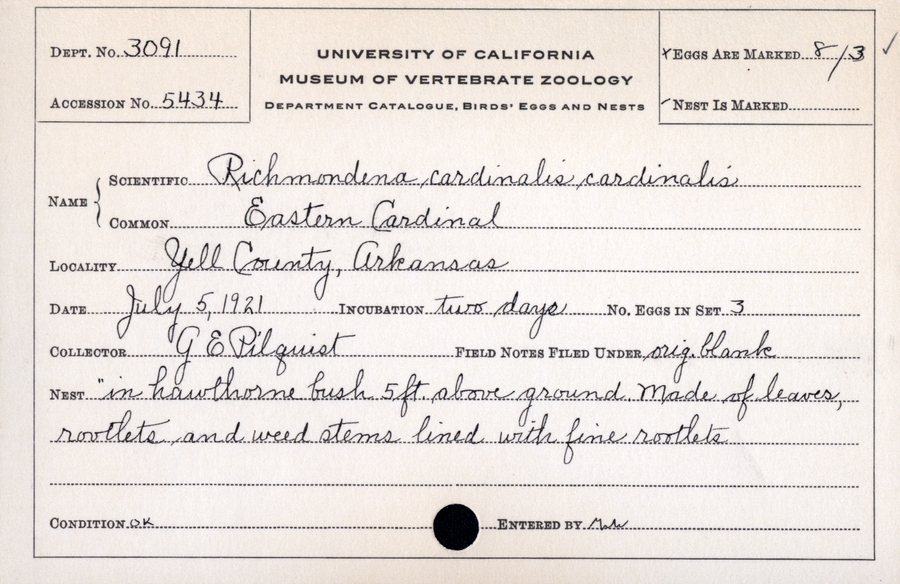 DEPT. NO. 3091
ACCESSION NO. 5434
UNIVERSITY OF CALIFORNIA
MUSEUM OF VERTEBRATE ZOOLOGY
DEPARTMENT CATALOGUE, BIRDS' EGGS AND NESTS
x EGGS ARE MARKED 8/3 ✓
NEST IS MARKED
NAME
SCIENTIFIC Richmondena cardinalis cardinalis
COMMON Eastern Cardinal
LOCALITY Yell County, Arkansas
DATE July 5, 1921 INCUBATION two days NO. EGGS IN SET 3
COLLECTOR G E Pilquist FIELD NOTES FILED UNDER orig. blank
NEST "in hawthorne bush 5 ft. above ground. Made of leaves,
rootlets and weed stems lined with fine rootlets
CONDITION OK ENTERED BY